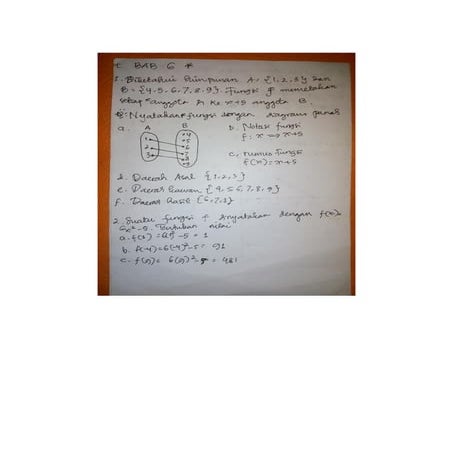 * BAB 6 *
1. Diketahui himpunan A = {1, 2, 3} dan
B = {4, 5, 6, 7, 8, 9}. Fungsi f memetakan
setiap anggota A ke x+5 anggota B.
Nyatakan fungsi dengan diagram panah
a. A B b. Notasi fungsi
1 2 3 4 5 6 7 8 9 f : x → x+5
c. rumus fungsi
f(x) = x+5
d. Daerah Asal {1, 2, 3}
e. Daerah kawan {4, 5, 6, 7, 8, 9}
f. Daerah hasil {6, 7, 8}
2. Suatu fungsi f dinyatakan dengan f(x)=
6x²-5. Tentukan nilai
b. f(-4) = 6(-4)²-5 = 91
c. f(9) = 6(9)²-5 = 481